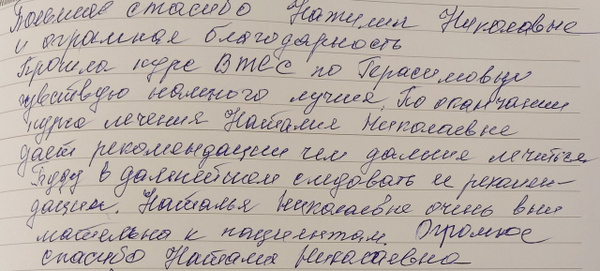 Большое спасибо Наталии Николаевне
и огромная благодарность
Прошла курс ВТЕС по Герасимовуи
чувствую намного лучше. По окончании
курса лечения Наталия Николаевне
даёт рекомендации чем дальше лечиться
Буду в дальнейшем следовать и рекомен-
дации. Наталья Николаевне очень вни
мательна к пациентам. Огромное
спасибо Наталия Николаевна